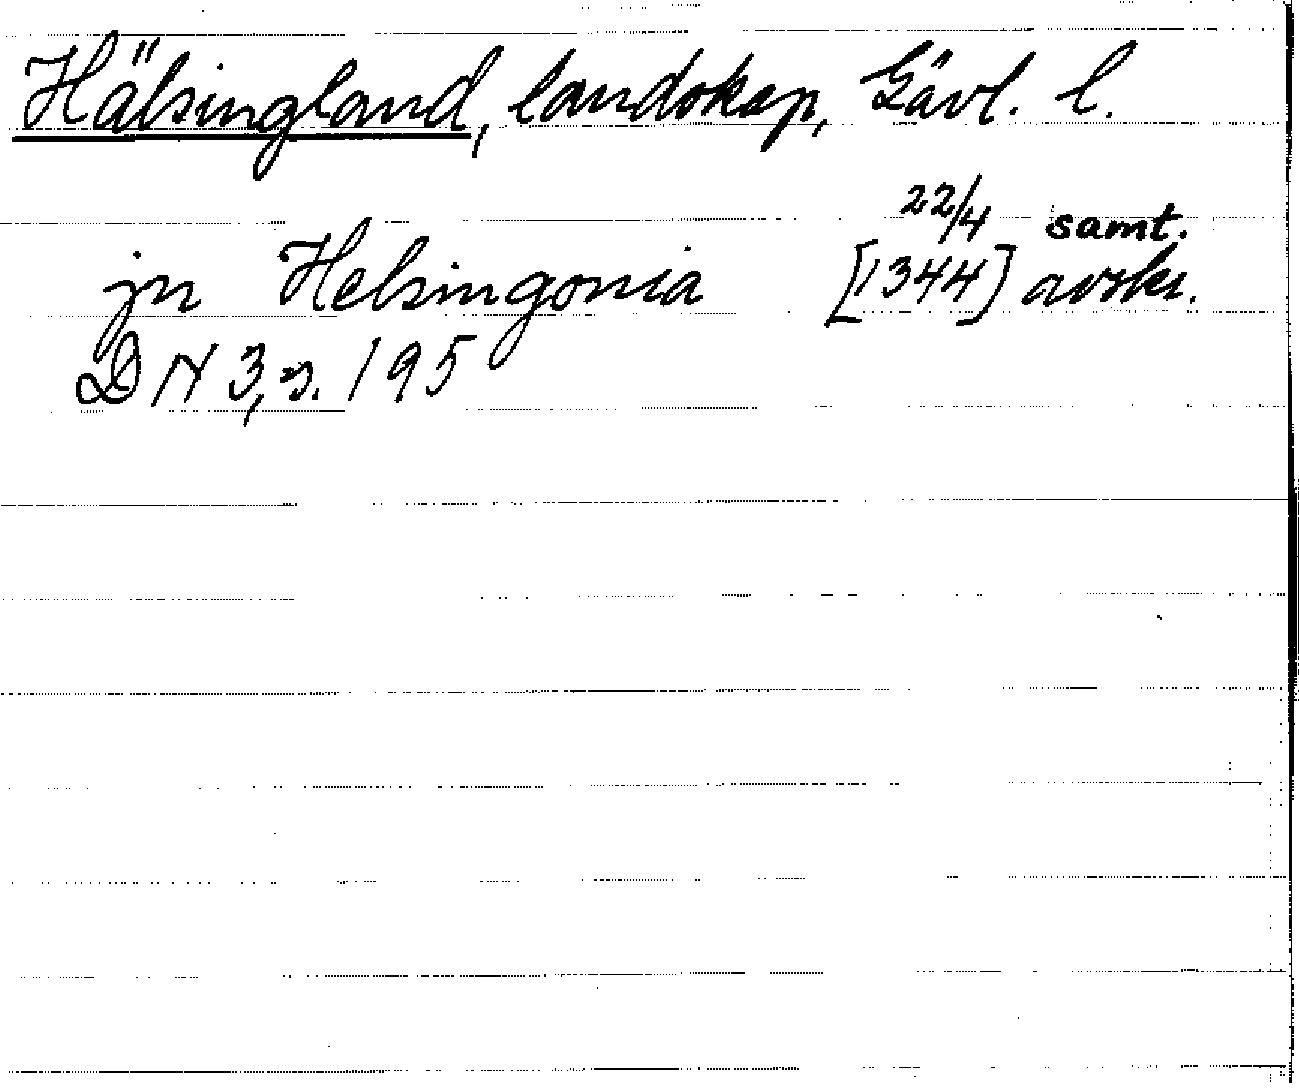 Hälsingland, landskap, Gävl. l.
22/4 samt.
jn Helsingonia [1344] avskr.
DN 3, s. 195